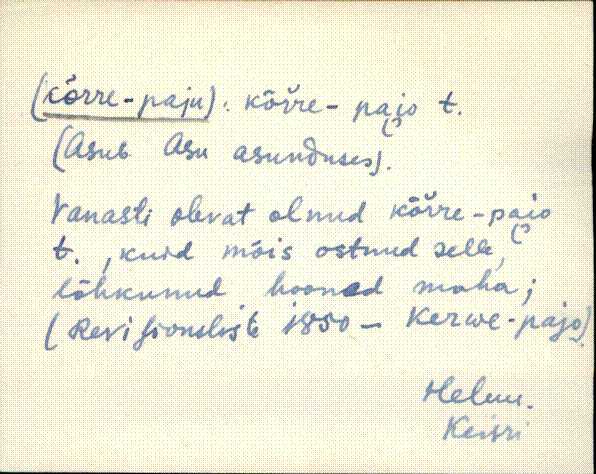 (kõrre-paju). kõr̆re-pai̯o t.
(Asub Asu asunduses).
Vanasti olevat olnud kõr̆re-pai̯o
t., kuid mõis ostnud selle,
lõhkunud hooned maha;
(Revisionsliste 1850 – Kerwe-pajo).
Helme.
Keisri